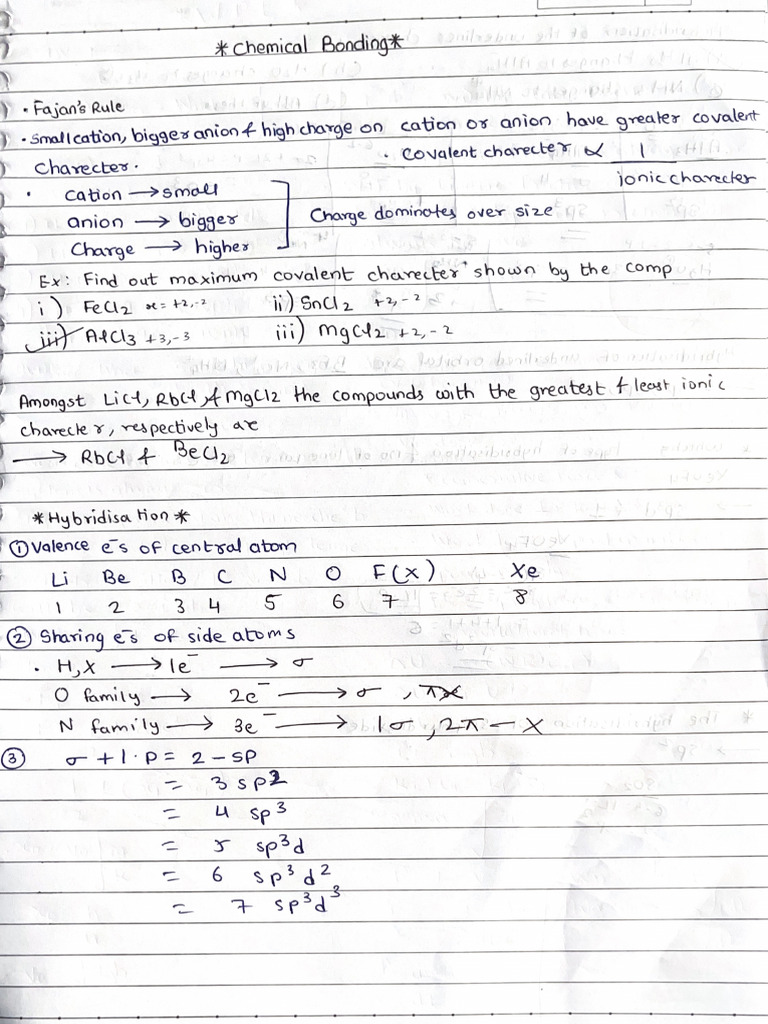 *Chemical Bonding*
• Fajan's Rule
• Small cation, bigger anion & high charge on cation or anion have greater covalent
Charecter. • Covalent charecter ∝ 1/ionic charecter
• cation → small
anion → bigger Charge dominates over size
Charge → higher
Ex: Find out maximum covalent charecter shown by the comp
i) FeCl2 x = +2,-2 ii) SnCl2 +2,-2
iii) AlCl3 +3,-3 iii) MgCl2 +2,-2
Amongst LiCl, RbCl, & MgCl2 the compounds with the greatest & least, ionic
charecter, respectively are
→ RbCl & BeCl2
*Hybridisation*
① Valence e⁻s of central atom
Li Be B C N O F(X) Xe
1 2 3 4 5 6 7 8
② Sharing e⁻s of side atoms
• H,X → 1e⁻ → σ
O family → 2e⁻ → σ, πx
N family → 3e⁻ → 1σ, 2π – X
③ σ + l.p = 2 – sp
= 3 sp2
= 4 sp³
= 5 sp³d
= 6 sp³d²
= 7 sp³d³